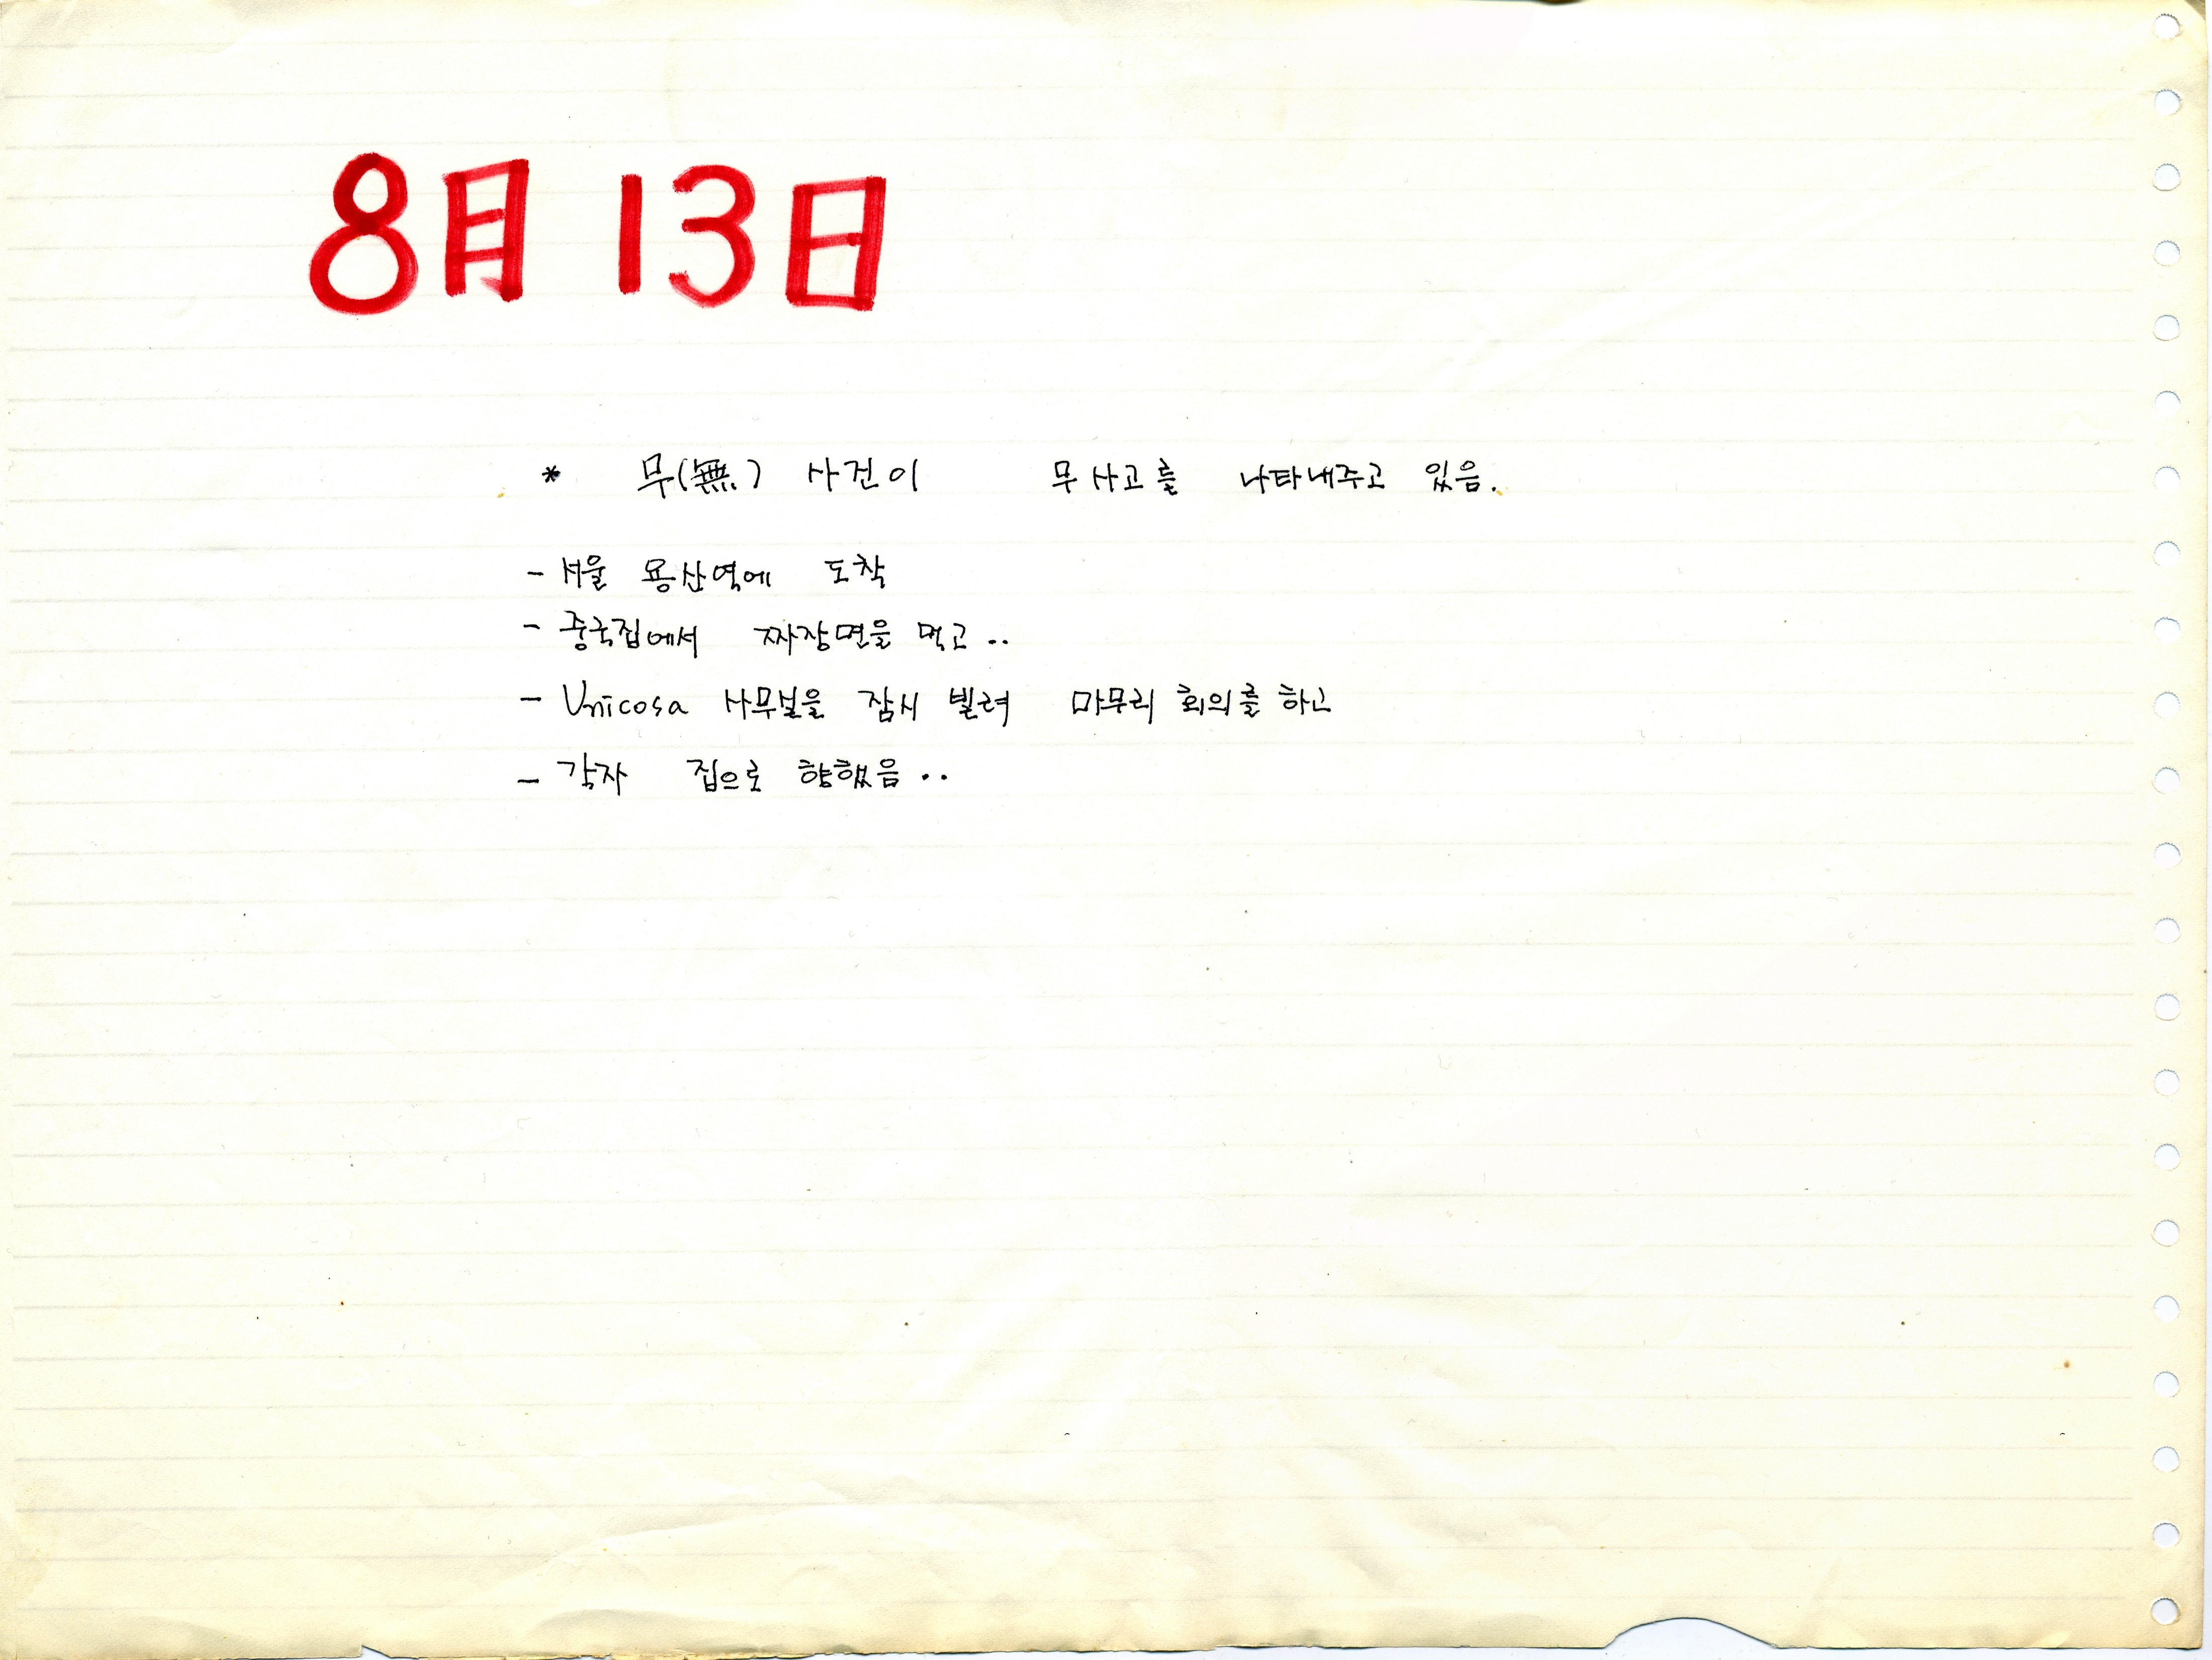 8月 13日
* 무(無) 사건이 무사고를 나타내주고 있음.
- 서울 용산역에 도착
- 중국집에서 짜장면을 먹고..
- Unicosa 사무실을 잠시 빌려 마무리 회의를 하고
- 각자 집으로 향했음..